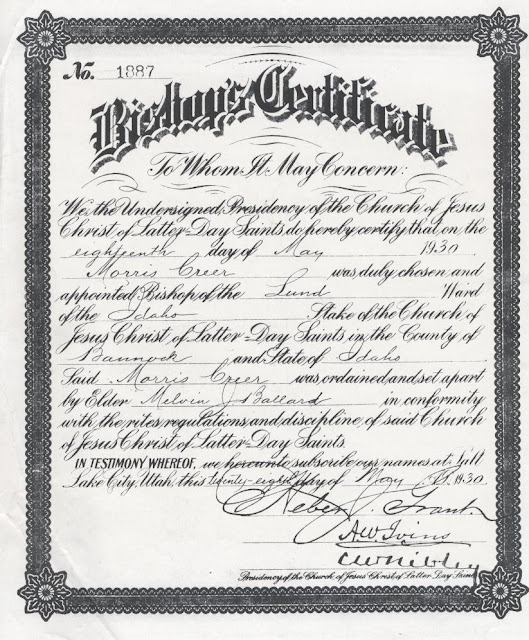 No. 1887
Bishop's Certificate
To Whom It May Concern:
We, the Undersigned, Presidency of the Church of Jesus
Christ of Latter-Day Saints, do hereby certify that on the
eighteenth day of May 1930
Morris Creer was duly chosen and
appointed Bishop of the Lund Ward
of the Idaho Stake of the Church of
Jesus Christ of Latter-Day Saints in the County of
Bannock and State of Idaho
Said Morris Creer was ordained and set apart
by Elder Melvin J Ballard in conformity
with the rites, regulations and discipline of said Church
of Jesus Christ of Latter-Day Saints
IN TESTIMONY WHEREOF, we hereunto subscribe our names at Salt
Lake City, Utah, this twenty-eighth day of May 1930.
Heber J. Grant
A W Ivins
C W Nibley
Presidency of the Church of Jesus Christ of Latter Day Saints